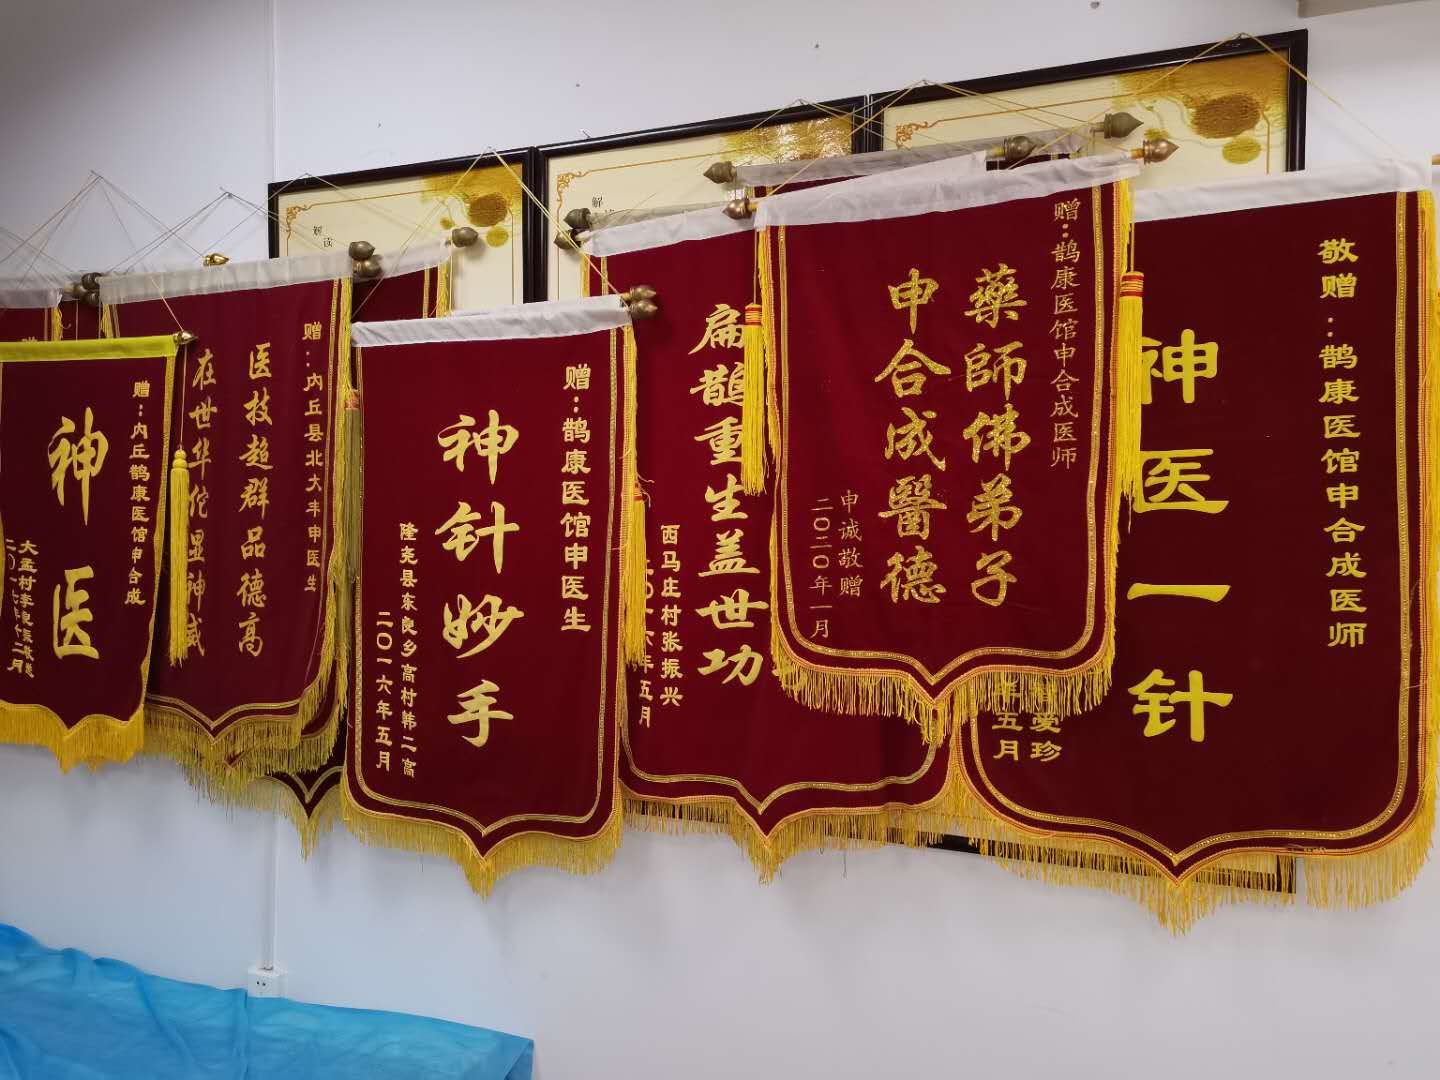 赠:内丘鹊康医馆申合成
神医
赠:内丘县北大丰申医生
医技超群品德高
在世华佗显神威
赠:鹊康医馆申医生
神针妙手
隆尧县东良乡高村韩二高
二〇一六年五月
扁鹊重生盖世功
西马庄村张振兴
二〇一六年五月
赠:鹊康医馆申合成医师
藥師佛弟子
申合成醫德
申诚敬赠
二〇二〇年一月
敬赠:鹊康医馆申合成医师
神医一针
爱珍
年五月
解读